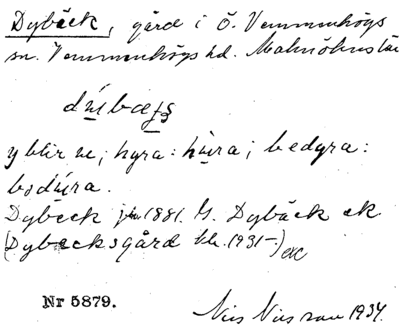 Dybäck, gård i Ö. Vemmenhögs
sn. Vemmenhögs hd. Malmöhus län
y blir u; hyra: hura; bedyra:
bodura.
Dybeck jb 1881. G. Dybäck ek
(Dybecksgård tlr. 1931-)
Nr 5879.
Nils Nilsson 1934.